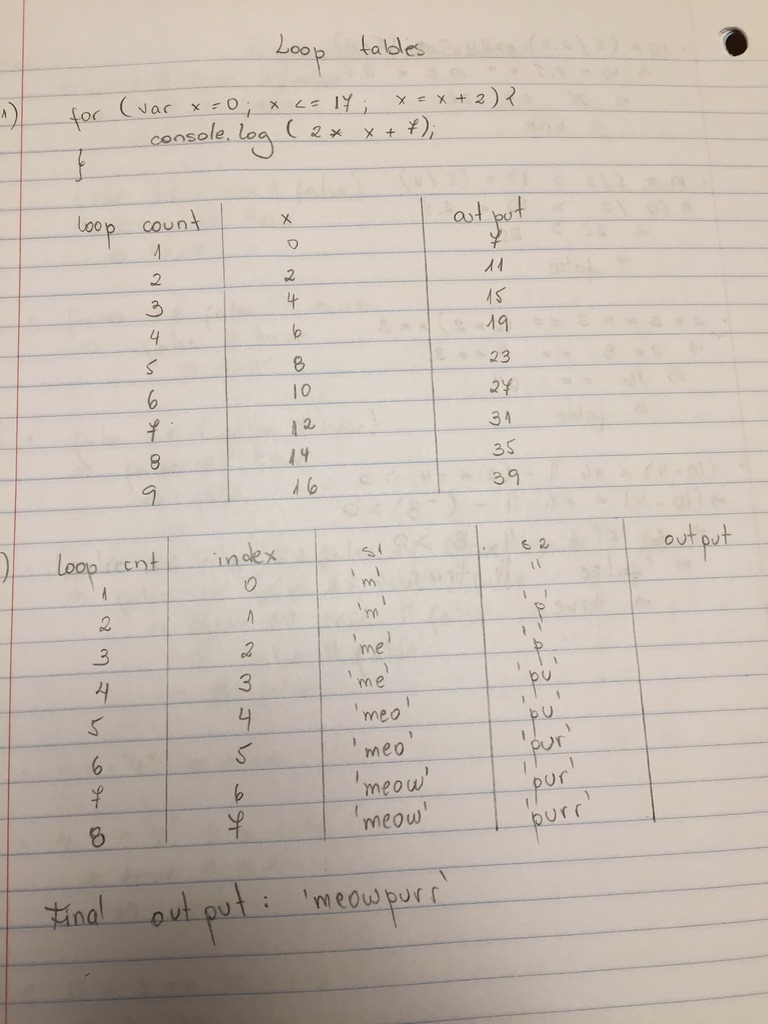 Loop tables
1) for (var x = 0; x <= 17; x = x + 2) {
console.log ( 2 * x + 7);
}
loop count x output
1 0 7
2 2 11
3 4 15
4 6 19
5 8 23
6 10 27
7 12 31
8 14 35
9 16 39
) loop cnt index s1 s2 output
1 0 'm' ''
2 1 'm' 'p'
3 2 'me' 'p'
4 3 'me' 'pu'
5 4 'meo' 'pu'
6 5 'meo' 'pur'
7 6 'meow' 'pur'
8 7 'meow' 'purr'
Final output: 'meowpurr'